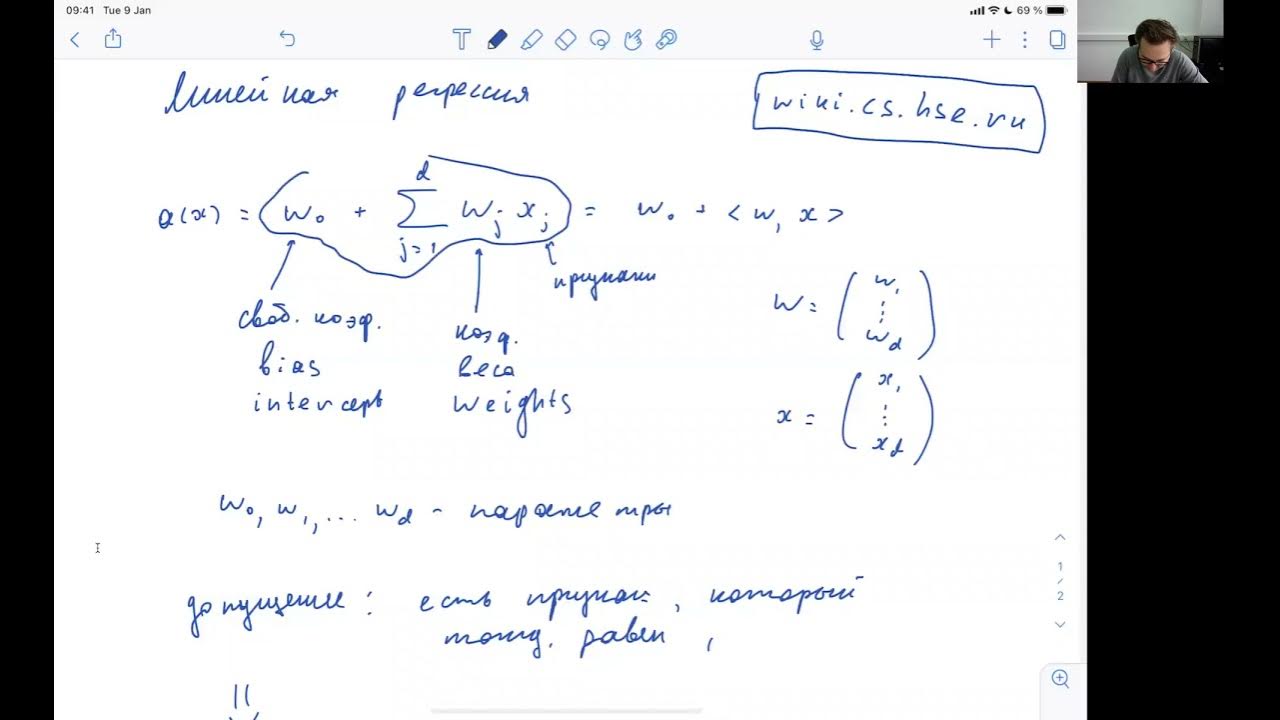 09:41 Tue 9 Jan
69 %
Линейная регрессия
wiki.cs.hse.ru
a(x) = w₀ + ∑_{j=1}^{d} w_j x_j = w₀ + <w, x>
признаки
своб. коэф.
bias
intercept
коэф.
веса
weights
w = (w₁ ⋮ w_d)
x = (x₁ ⋮ x_d)
w₀, w₁, ... w_d - параметры
допущение: есть признак, который
тожд. равен 1
⇓
1
/
2